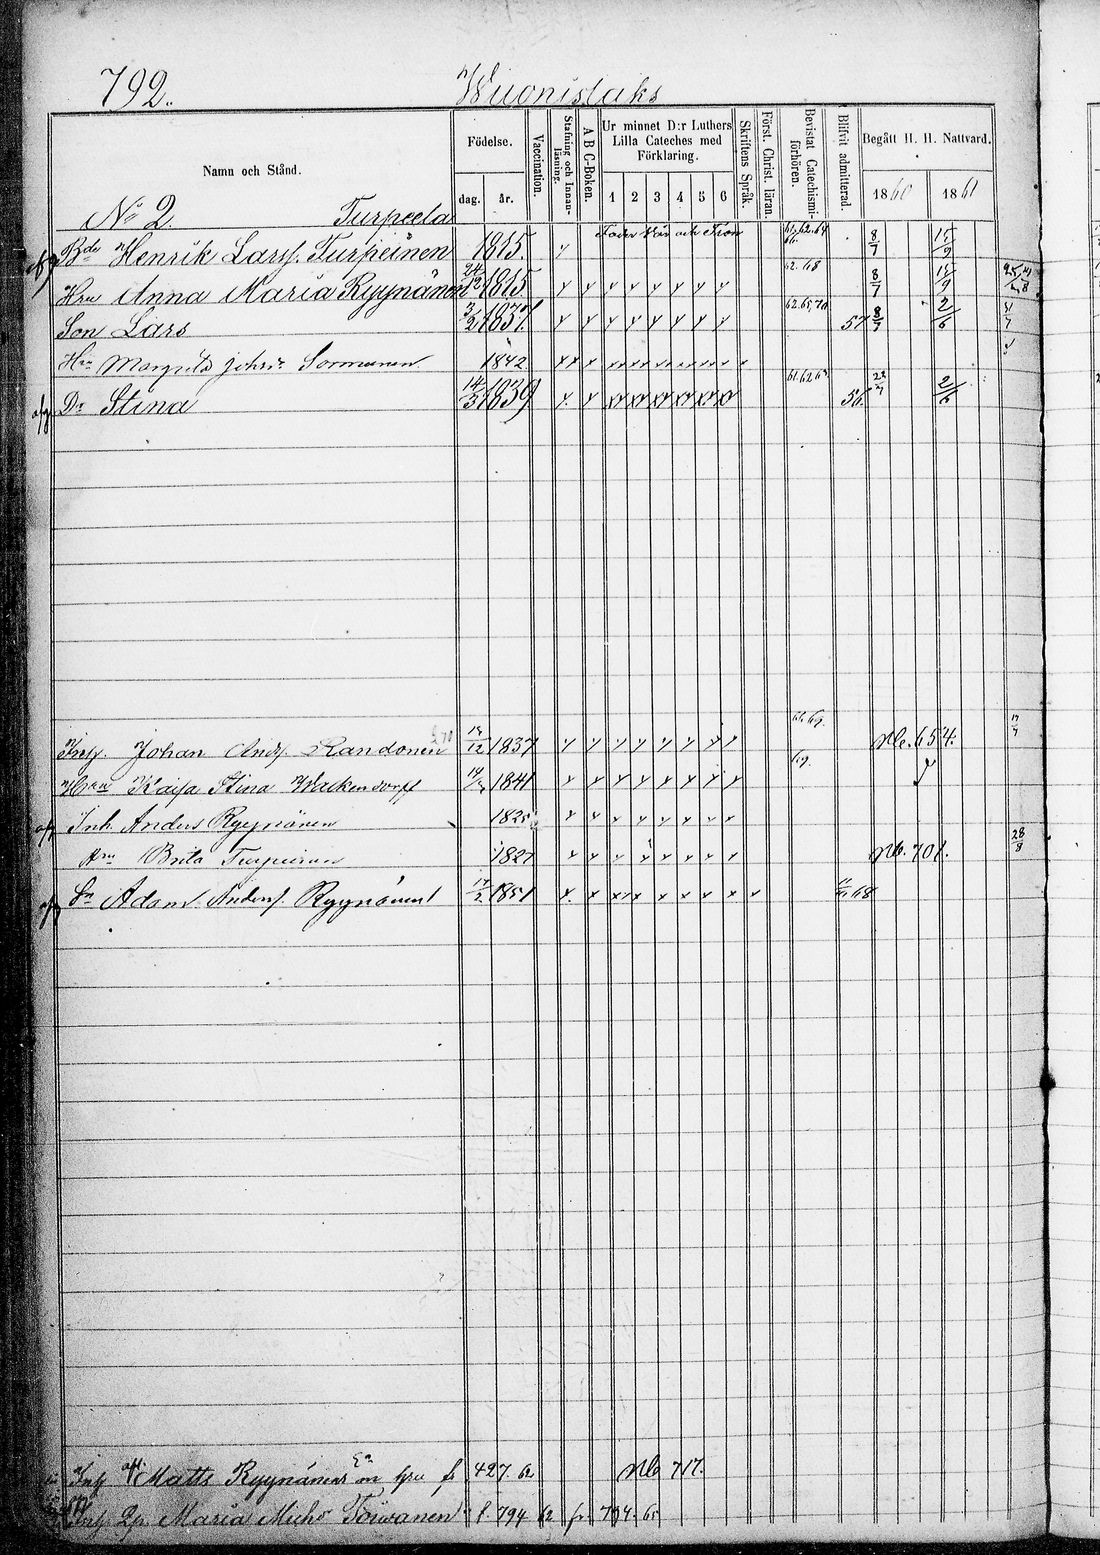 792. Wuonislaks
Namn och Stånd. Födelse. dag. år. Vaccination. Stafning och Innanläsning. A B C-Boken. Ur minnet D:r Luthers Lilla Cateches med Förklaring. 1 2 3 4 5 6 Skriftens Språk. Först. Christ. läran. Bevistat Catechismiförhören. Blifvit admitterad. Begått H. H. Nattvard. 1860 1861
No 2. Turpeela
Bde Henrik Larss. Turpeinen 1815. Fader Vår och Tron 8/7 15/9
Hru Anna Maria Ryynänen 1815 62.68 8/7 15/9
Son Lars 3/2 1837 57 8/7 2/6
Hru Margreta Johsdr Sormunen 1842
Dr Stina 14/3 1839 56. 22/7 2/6
Inh. JohanAnds. Randonen 1837 Nb. 654.
Hru Kaisa Stina Wackendorff 1841 69.
Inh. Anders Ryynänen 1825
Hru Brita Turpeinen 1827 Nb. 701. 28/8
Sn Adam Anderss. Ryynänen 17/2 1851 68
Inh Matts Ryynänen hru fr. 427. 62 Nb 717.
Inh Maria Michs Törwänen f. 794 62 fr. 794. 65